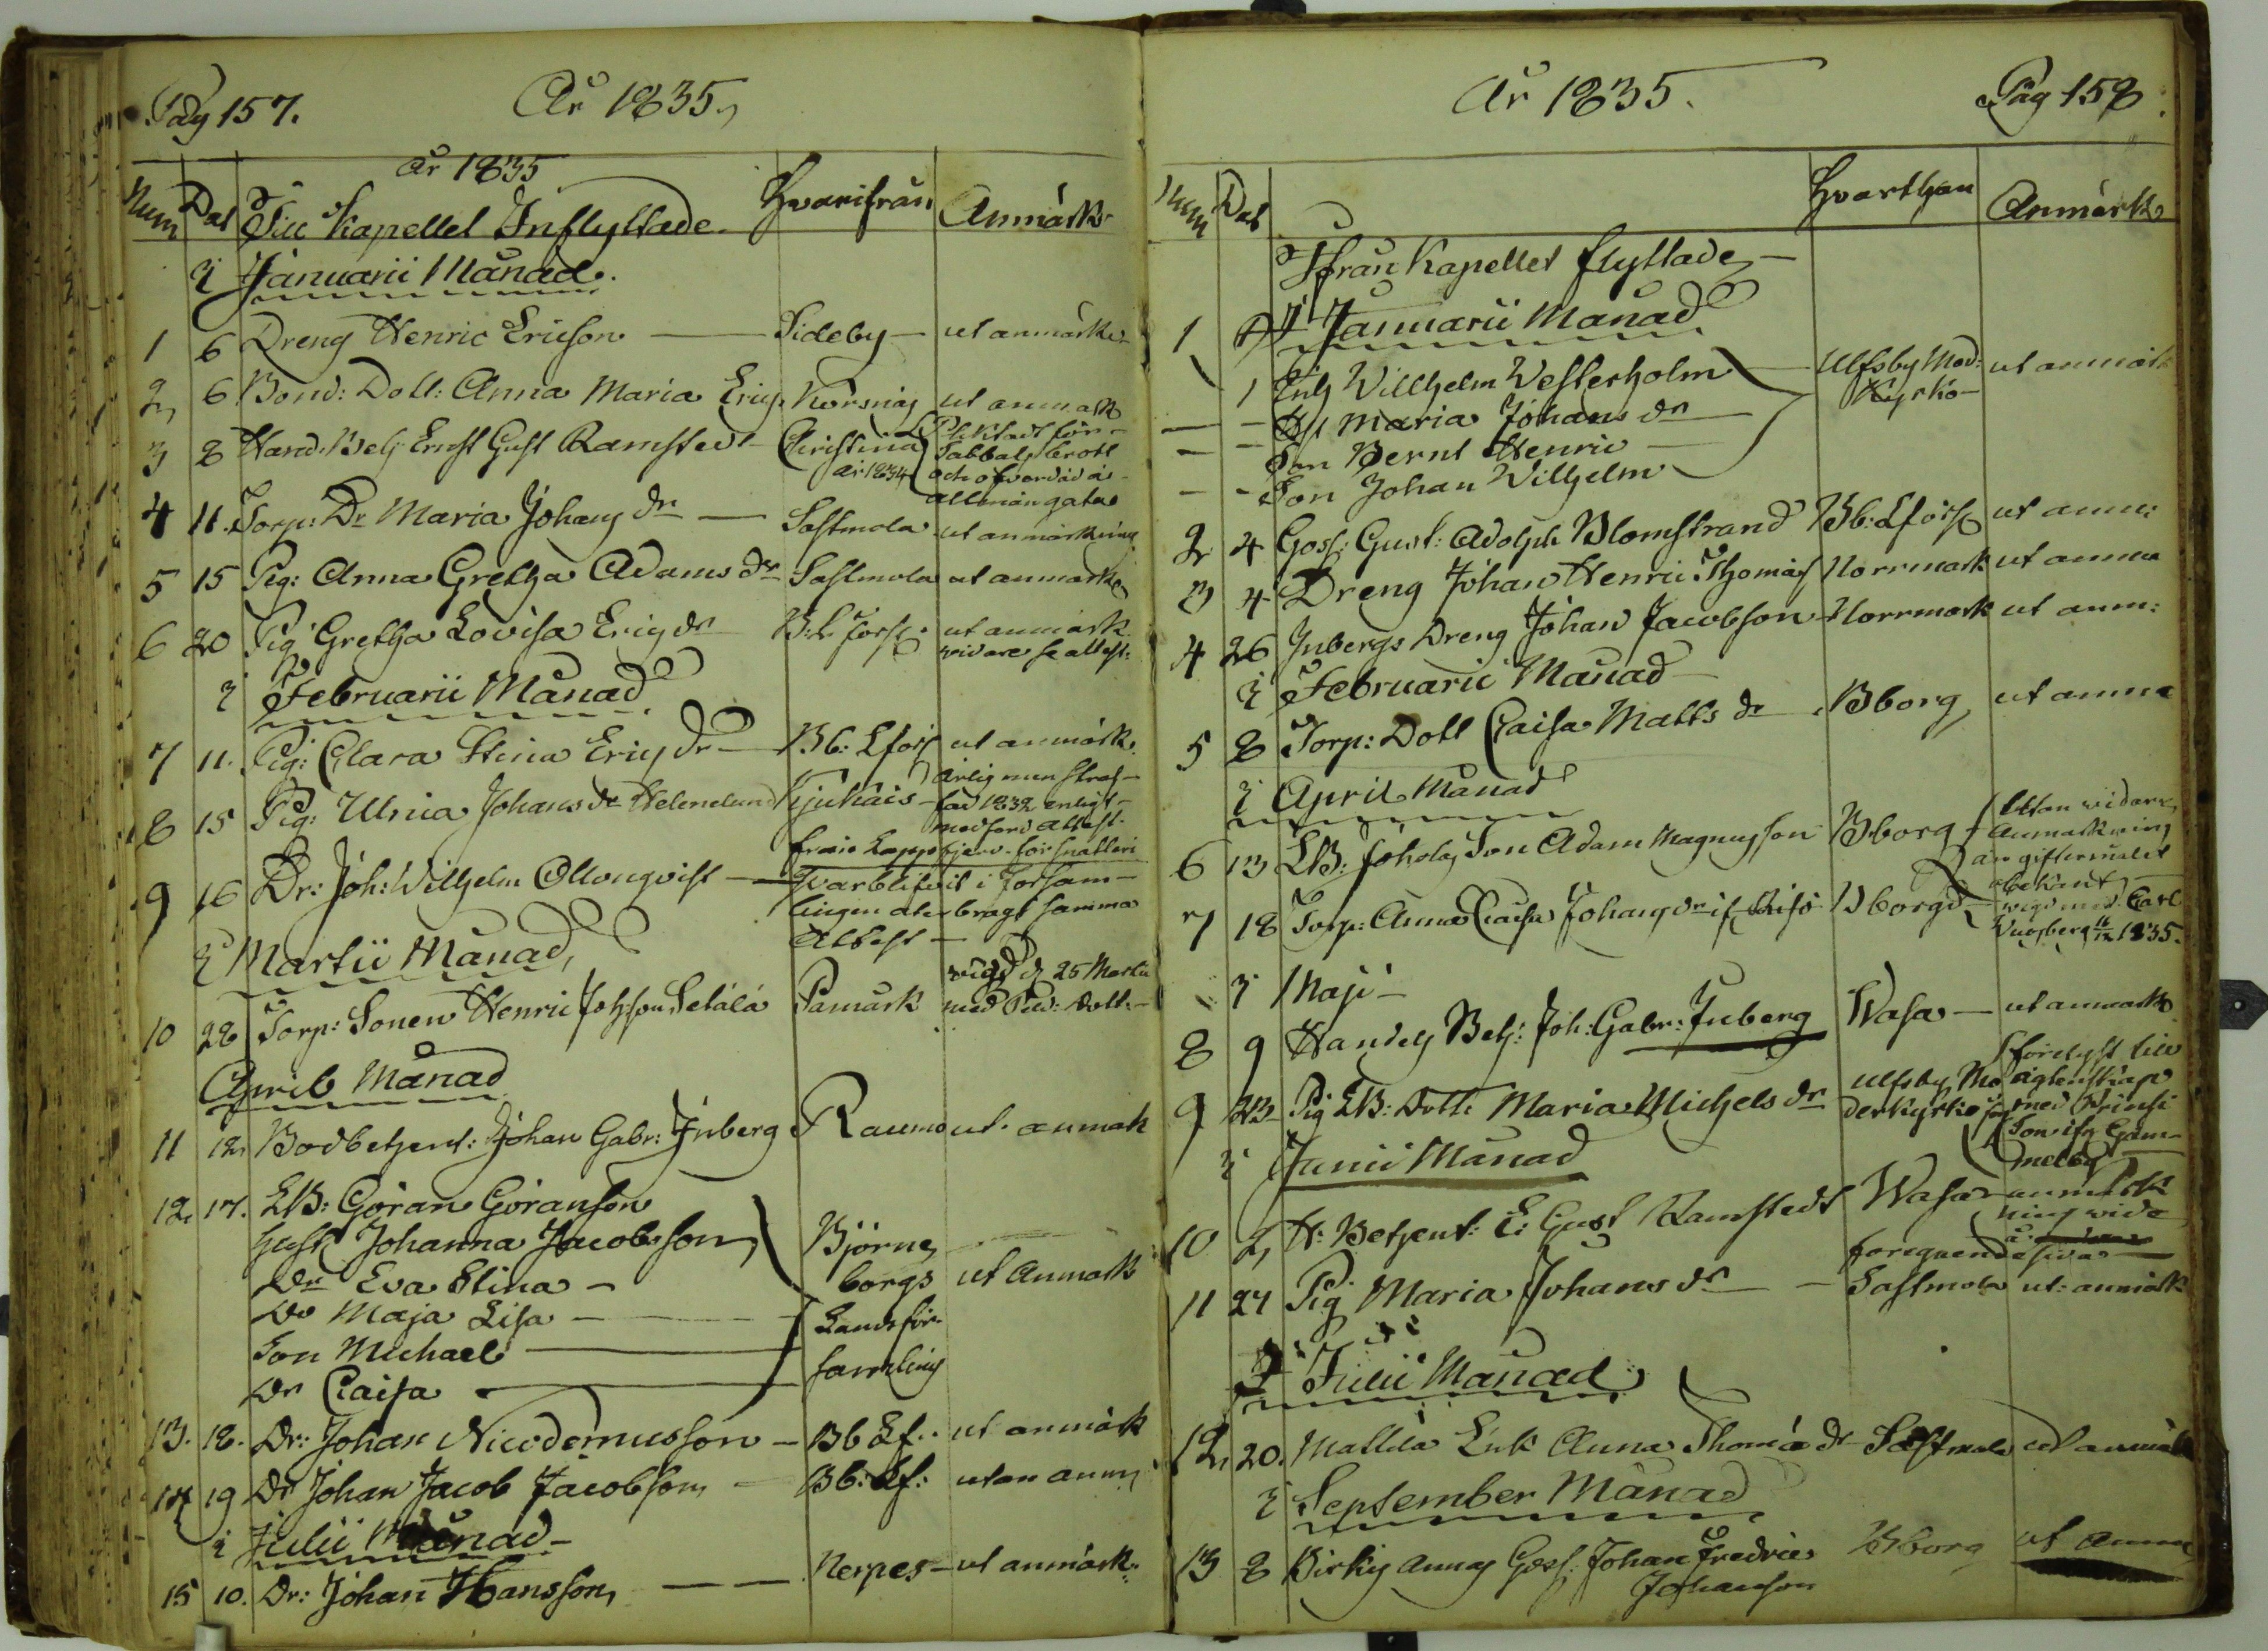 Pag 157.
År 1835.
År 1835
Num Dat Till Kapellet Inflyttade. Hvarifrån Anmärk
i Januarii Månad.
1 6 Dreng Henric Ericson Sideby ut anmärk
2 6 Bond: Dott: Anna Maria Erics ut anmärk
3 8 Hand: Betj Ernst Gust Ramstedt Christina
år 1834
Sabbats brott
och
allmän gata
4 11. Torp: Dr Maria Johans dr Sastmola ut anmärkning
5 15 Pig: Anna Gretha Adams dr Sastmola ut anmärk
6 20 Pig Gretha Lovisa Erics dr B: L: förs: ut anmärk
vidare se attest:
i Februarii Månad
7 11. Pig: Clara Stina Erics dr Bb: Lförs ut anmärk
8 15 Pig: Ulrica Johans dr Helenelund
Ärlig men straf-
fad 1832 enligt
medförd attest.
från Lappfjerd för snatteri
9 16 Dr: Joh: Wilhelm Ollonqvist
qvarblifvit i Församlingen
återbragt samma
Attest
i Martii Månad
10 28 Torp: Sonen Henric Johsson Setälä Påmark
vigd d 25 Martii
med Dott:
April Månad
11 12 Bodbetjent: Johan Gabr: Inberg Raumo ut. anmärk
12 17. LB: Göran Göransson
Hust Johanna Jacobsson
Dr Eva Stina
Do Maja Lisa
Son Michael
Dr Caisa
Björne
borgs
Landsför
samling
ut Anmärk
13. 18. Dr: Johan Nicodemusson Bb Lf: ut anmärk
14 19 Dr Johan Jacob Jacobsson Bb: Lf: utan anm
i Julii Månad
15 10. Dr: Johan Hansson Nerpes ut anmärk:
År 1835.
Pag 158
Num Dat Hvarthän Anmärk
Ifrån Kapellet flyttade
i Januarii Månad
1 1 Inh Willhelm Westerholm Ulfsby Mod: ut anmärk
Kyrko
Hu Maria Johans dr
Son Bernt Henric
Son Johan Wilhelm
2 4 Goss: Gust: Adolph Blomstrand Bb: Lförs ut anm:
3 4 Dreng Johan Henric Thomas Norrmark ut anm
4 26 Inbergs Dreng Johan Jacobsson Norrmark ut anm:
i Februarii Månad
5 8 Torp: Dott Caisa Matts dr Bborg ut anm
i April Månad
6 13 LB: Son Adam Magnusson Bborg
Utan vidare
Anmärkning
än giftermålet
obekant
7 18 Torp: Anna Caisa Johans dr Bborg
vigd med Carl
1835.
i Maji
8 9 Handels Betj: Joh: Gabr: Inberg Wasa ut anmärk
9 23 Pig LB: Dott: Maria Michels dr Ulfsby Mo
derkyrko
förelyst till
äktenskap
med
Son ifr Gam-
melby
i Junii Månad
10 2 H: Betjent: E: Gust Ramstedt Wasa
anmärk
ning vide
föregående sida
11 27 Pig Maria Johans dr Sastmola ut: anmärk
i Julii Månad
12 20. Matttila Enk Anna Thomæ dr Sastmola ut anmärk
i September Månad
13 8 Annas Goss: Johan Fredric Bborg ut Anm
Johansson